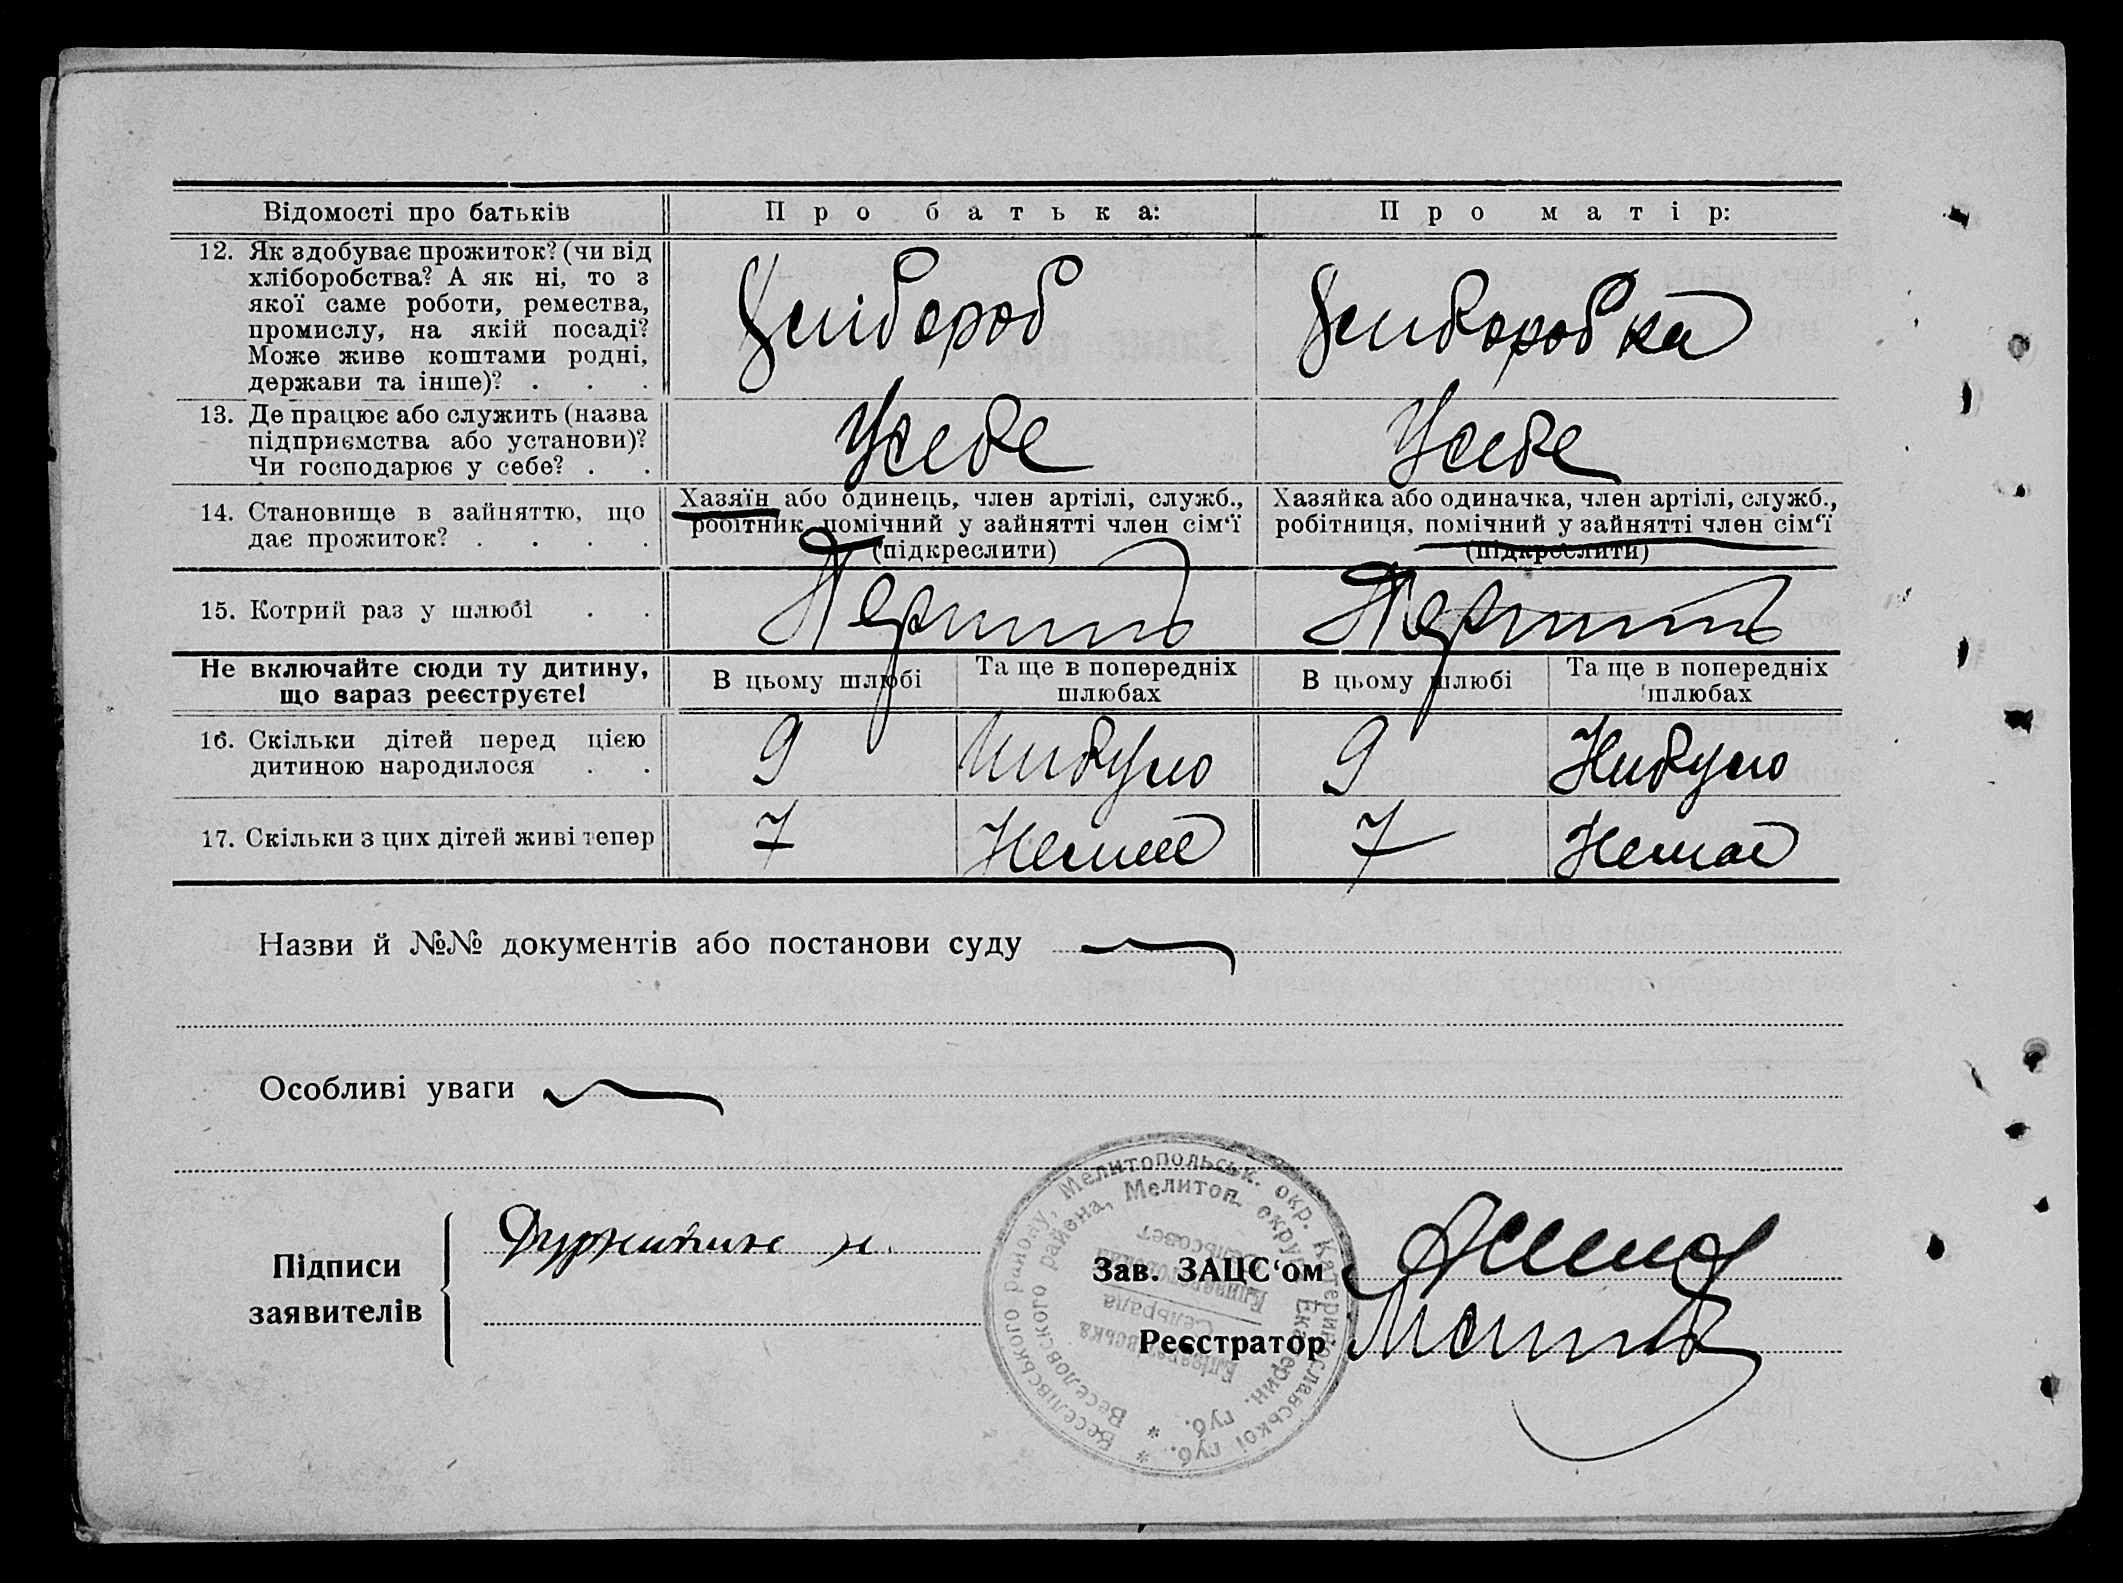 Відомості про батьків
Про батька:
Про матір:
12. Як здобуває прожиток? (чи від
хліборобства? А як ні, то з
якої саме роботи, ремества,
промислу, на якій посаді?
Може живе коштами родні,
держави та інше)? . . .
Хлібороб
Хлиборобка
13. Де працює або служить (назва
підприємства або установи)?
Чи господарює у себе? . .
Усебе
Усебе
14. Становище в зайняттю, що
дає прожиток? . . . .
Хазяїн або одинець, член артілі, служб.,
робітник, помічний у зайнятті член сім'ї
(підкреслити)
Хазяйка або одиначка, член артілі, служб.,
робітниця, помічний у зайнятті член сім'ї
(підкреслити)
15. Котрий раз у шлюбі . .
Першій
Першій
Не включайте сюди ту дитину,
що зараз реєструєте!
В цьому шлюбі
Та ще в попередніх
шлюбах
В цьому шлюбі
Та ще в попередніх
шлюбах
16. Скільки дітей перед цією
дитиною народилося . .
9
Нибуло
9
Нибуло
17. Скільки з цих дітей живі тепер
7
Немає
7
Немає
Назви й №№ документів або постанови суду
Особливі уваги
Підписи
заявителів
Зав. ЗАЦС'ом
Реєстратор
Веселівського району, Мелитопольськ. окр. Катеринославської губ.
Веселовского района, Мелитоп. округ. Екатерин. губ.
Сельрада
Сельсовет